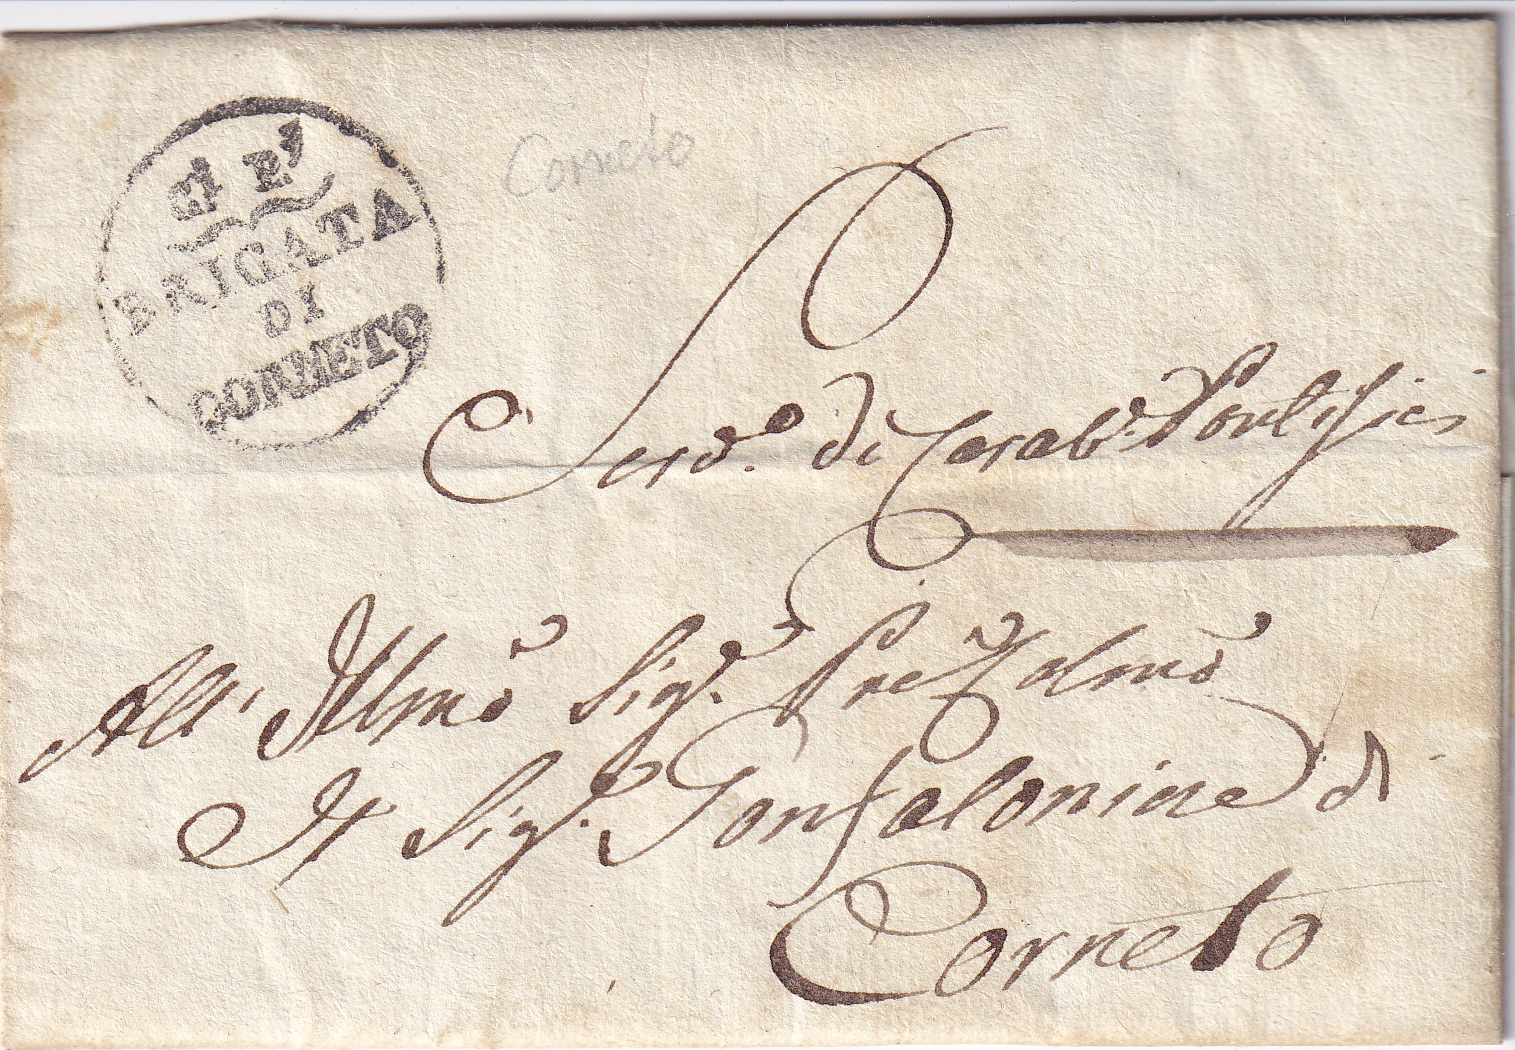 BRIGATA
DI
CORNETO
Corneto
Serv.o di Carab.i Pontificj
All' Illmo Sig.r Sig.r Pre Colmo
Il Sig.r Gonfaloniere di
Corneto